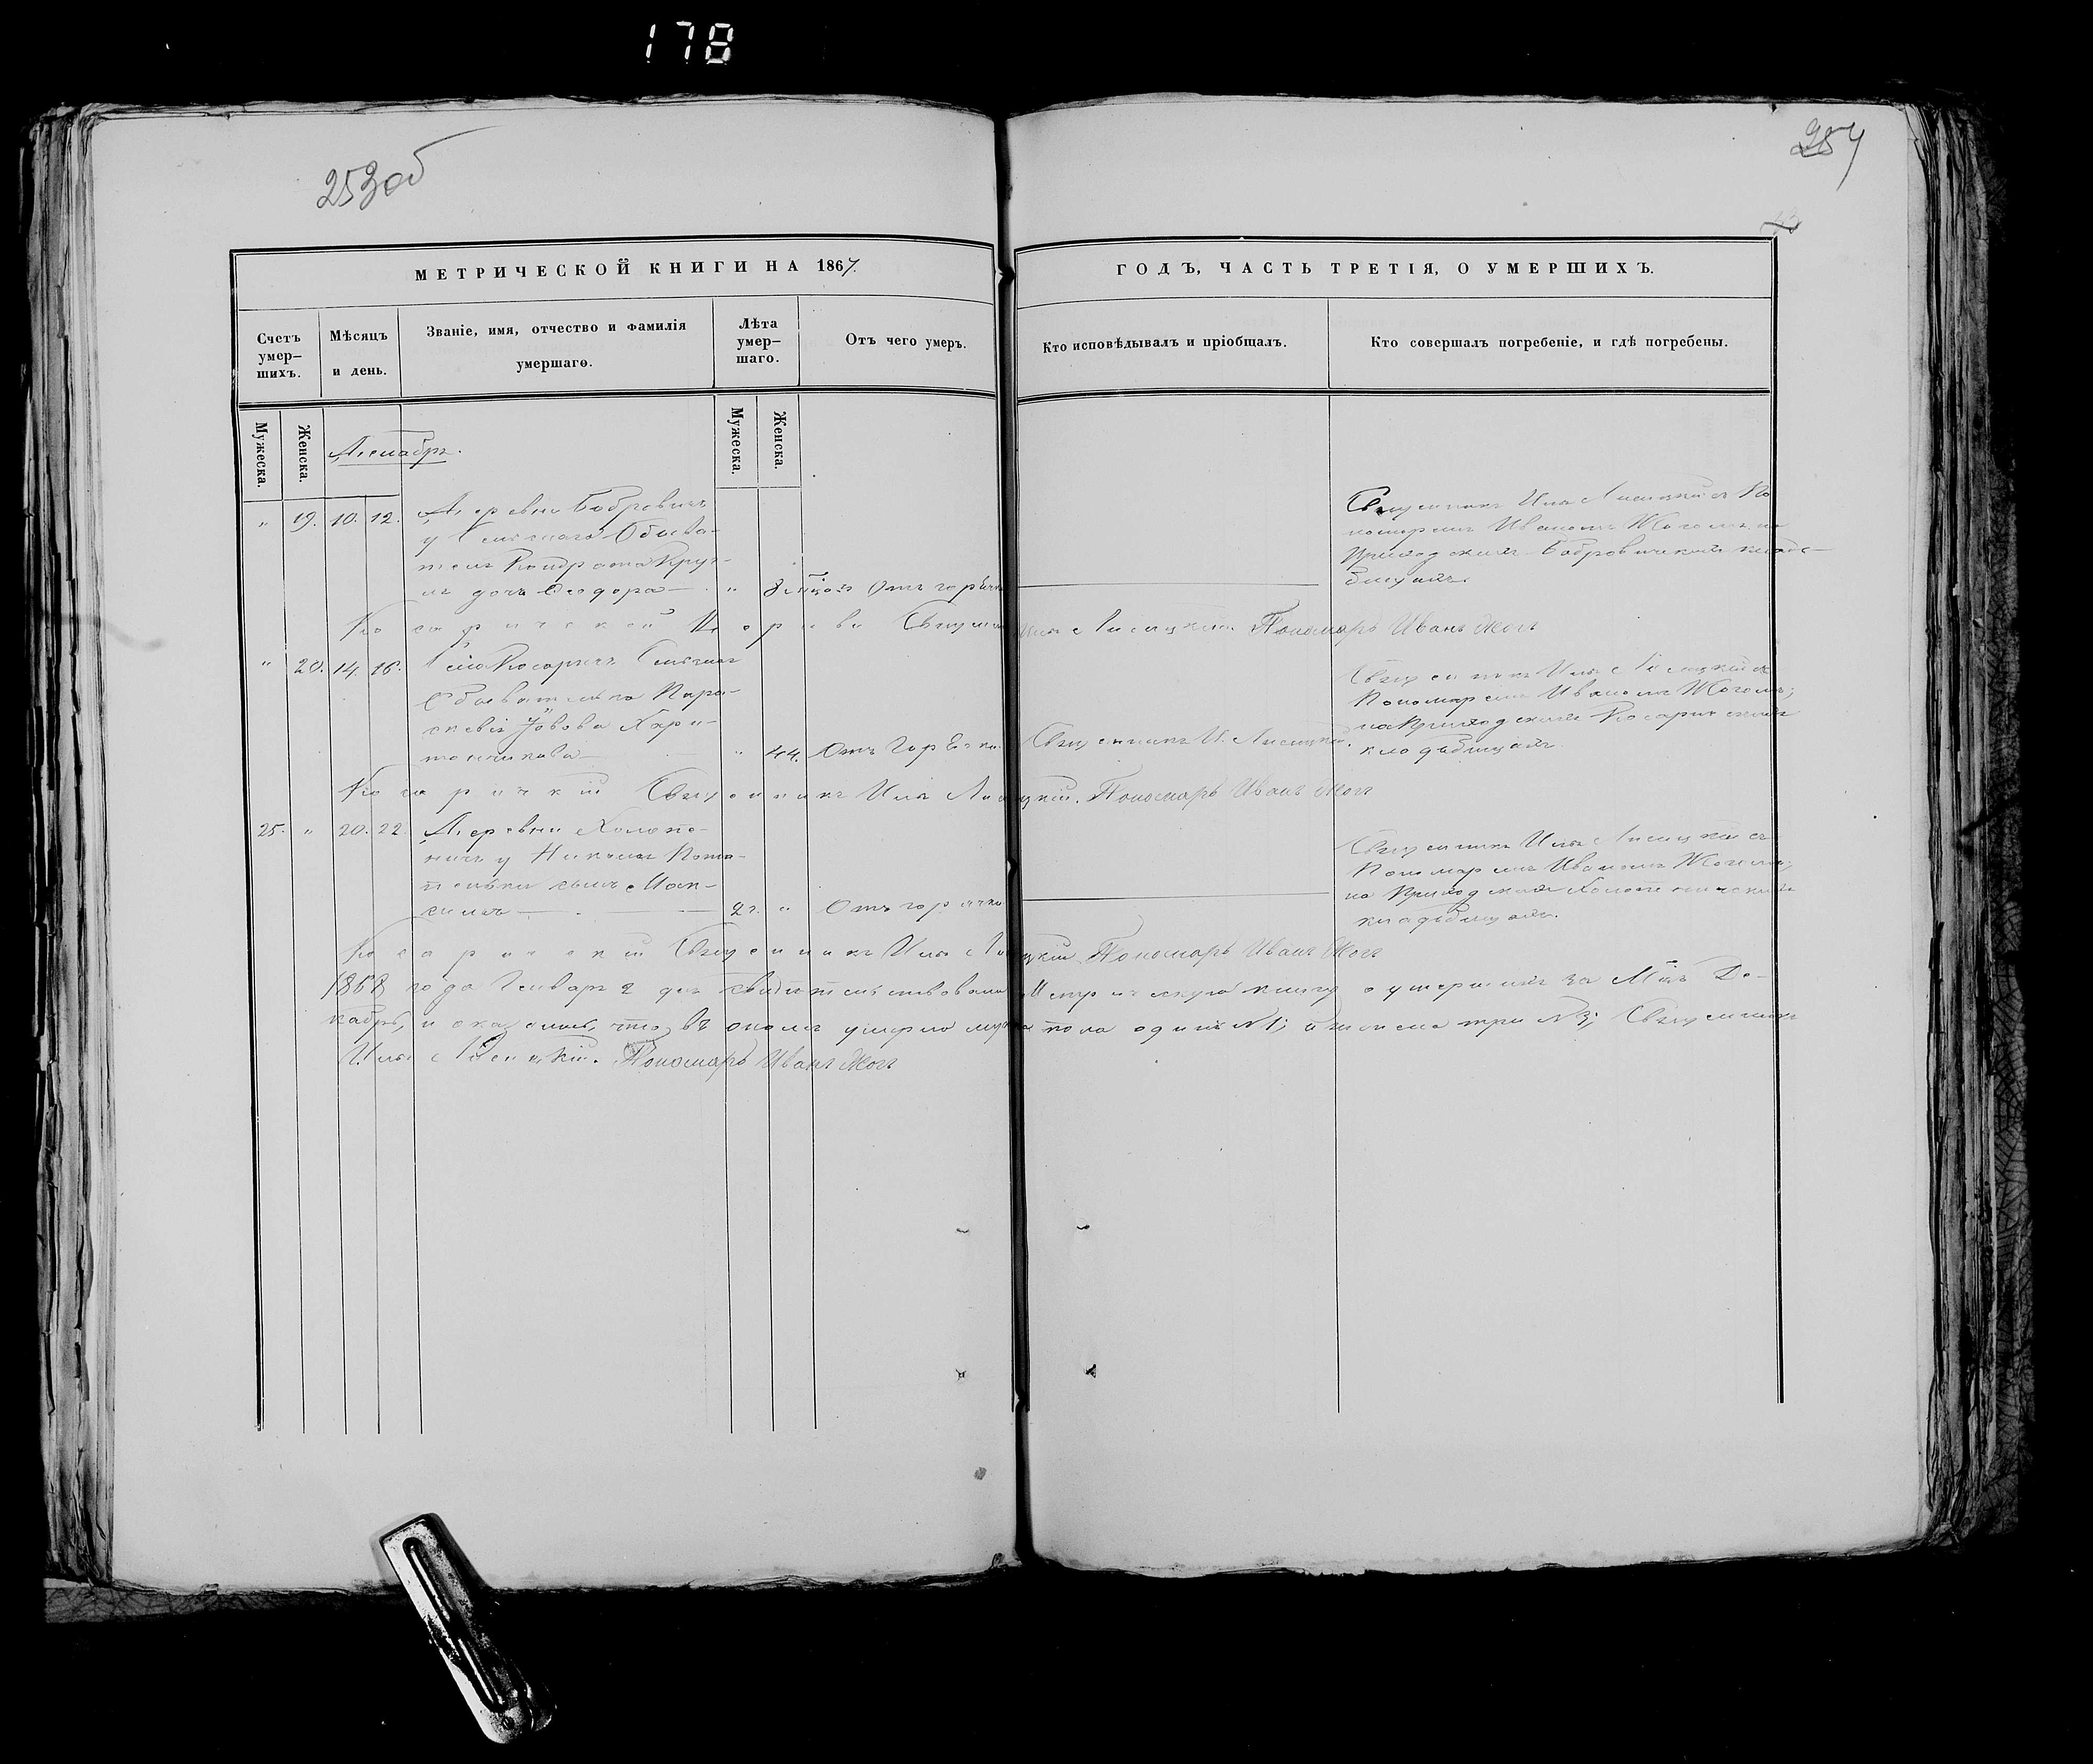 178
253 об
254
МЕТРИЧЕСКОЙ КНИГИ НА 1867.
ГОДЪ, ЧАСТЬ ТРЕТІЯ, О УМЕРШИХЪ.
Счетъ умер-
шихъ.
Мѣсяцъ
и день.
Званіе, имя, отчество и фамилія
умершаго.
Лѣта
умер-
шаго.
Отъ чего умеръ.
Кто исповѣдывалъ и пріобщалъ.
Кто совершалъ погребеніе, и гдѣ погребены.
Мужеска.
Женска.
Мужеска.
Женска.
Декабрь.
" 19. 10. 12.
Деревни Бобровичъ
у Сельскаго Обыва-
теля Кондрата Круг-
дочь Ѳеодора
" Отъ горячки
Священникъ Илія Лисицкій съ По-
номаремъ Иваномъ Жогомъ, на
Приходскомъ Бобровичскомъ клад-
бищѣ.
Косаричской Церкви Священникъ Илія Лисицкій. Пономарь Иванъ Жогъ
" 20. 14. 16.
Села Косаричъ Сельская
Обывателька Пара-
скевія Іовова Хари-
тончикова
" 44. Отъ Горячки
Священникъ И. Лисицкій.
Священникъ Илія Лисицкій съ
Пономаремъ Иваномъ Жогомъ;
на Приходскомъ Косаричскомъ
кладбищѣ.
Косаричскій Священникъ Илія Лисицкій. Пономарь Иванъ Жогъ
25. " 20. 22.
Деревни Холопе-
ничъ у Николая Пота-
пенка сынъ Мак-
симъ
2 г. " Отъ горячки
Священникъ Илія Лисицкій съ
Пономаремъ Иваномъ Жогомъ;
на Приходскомъ Холопеничскомъ
кладбищѣ.
Косаричскій Священникъ Илія Лисицкій. Пономарь Иванъ Жогъ
1868 года Генваря 2 дня свидѣтельствовали Метрическую книгу о умершихъ за Мцъ Де-
кабрь, и оказалось, что въ ономъ умерло мужска пола одинъ №1; а женска три №3; Священникъ
Илія Лисицкій. Пономарь Иванъ Жогъ